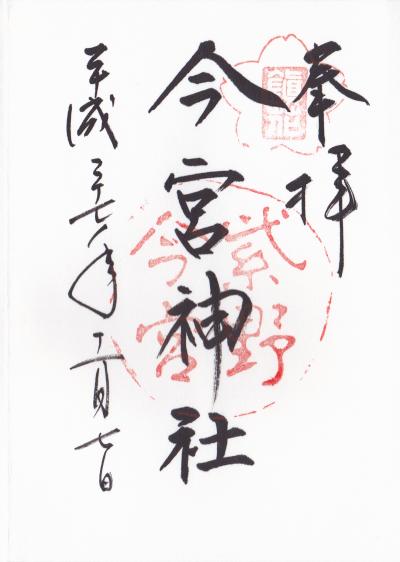 奉拝
今宮神社
平成二十七年十二月七日
紫野
今宮